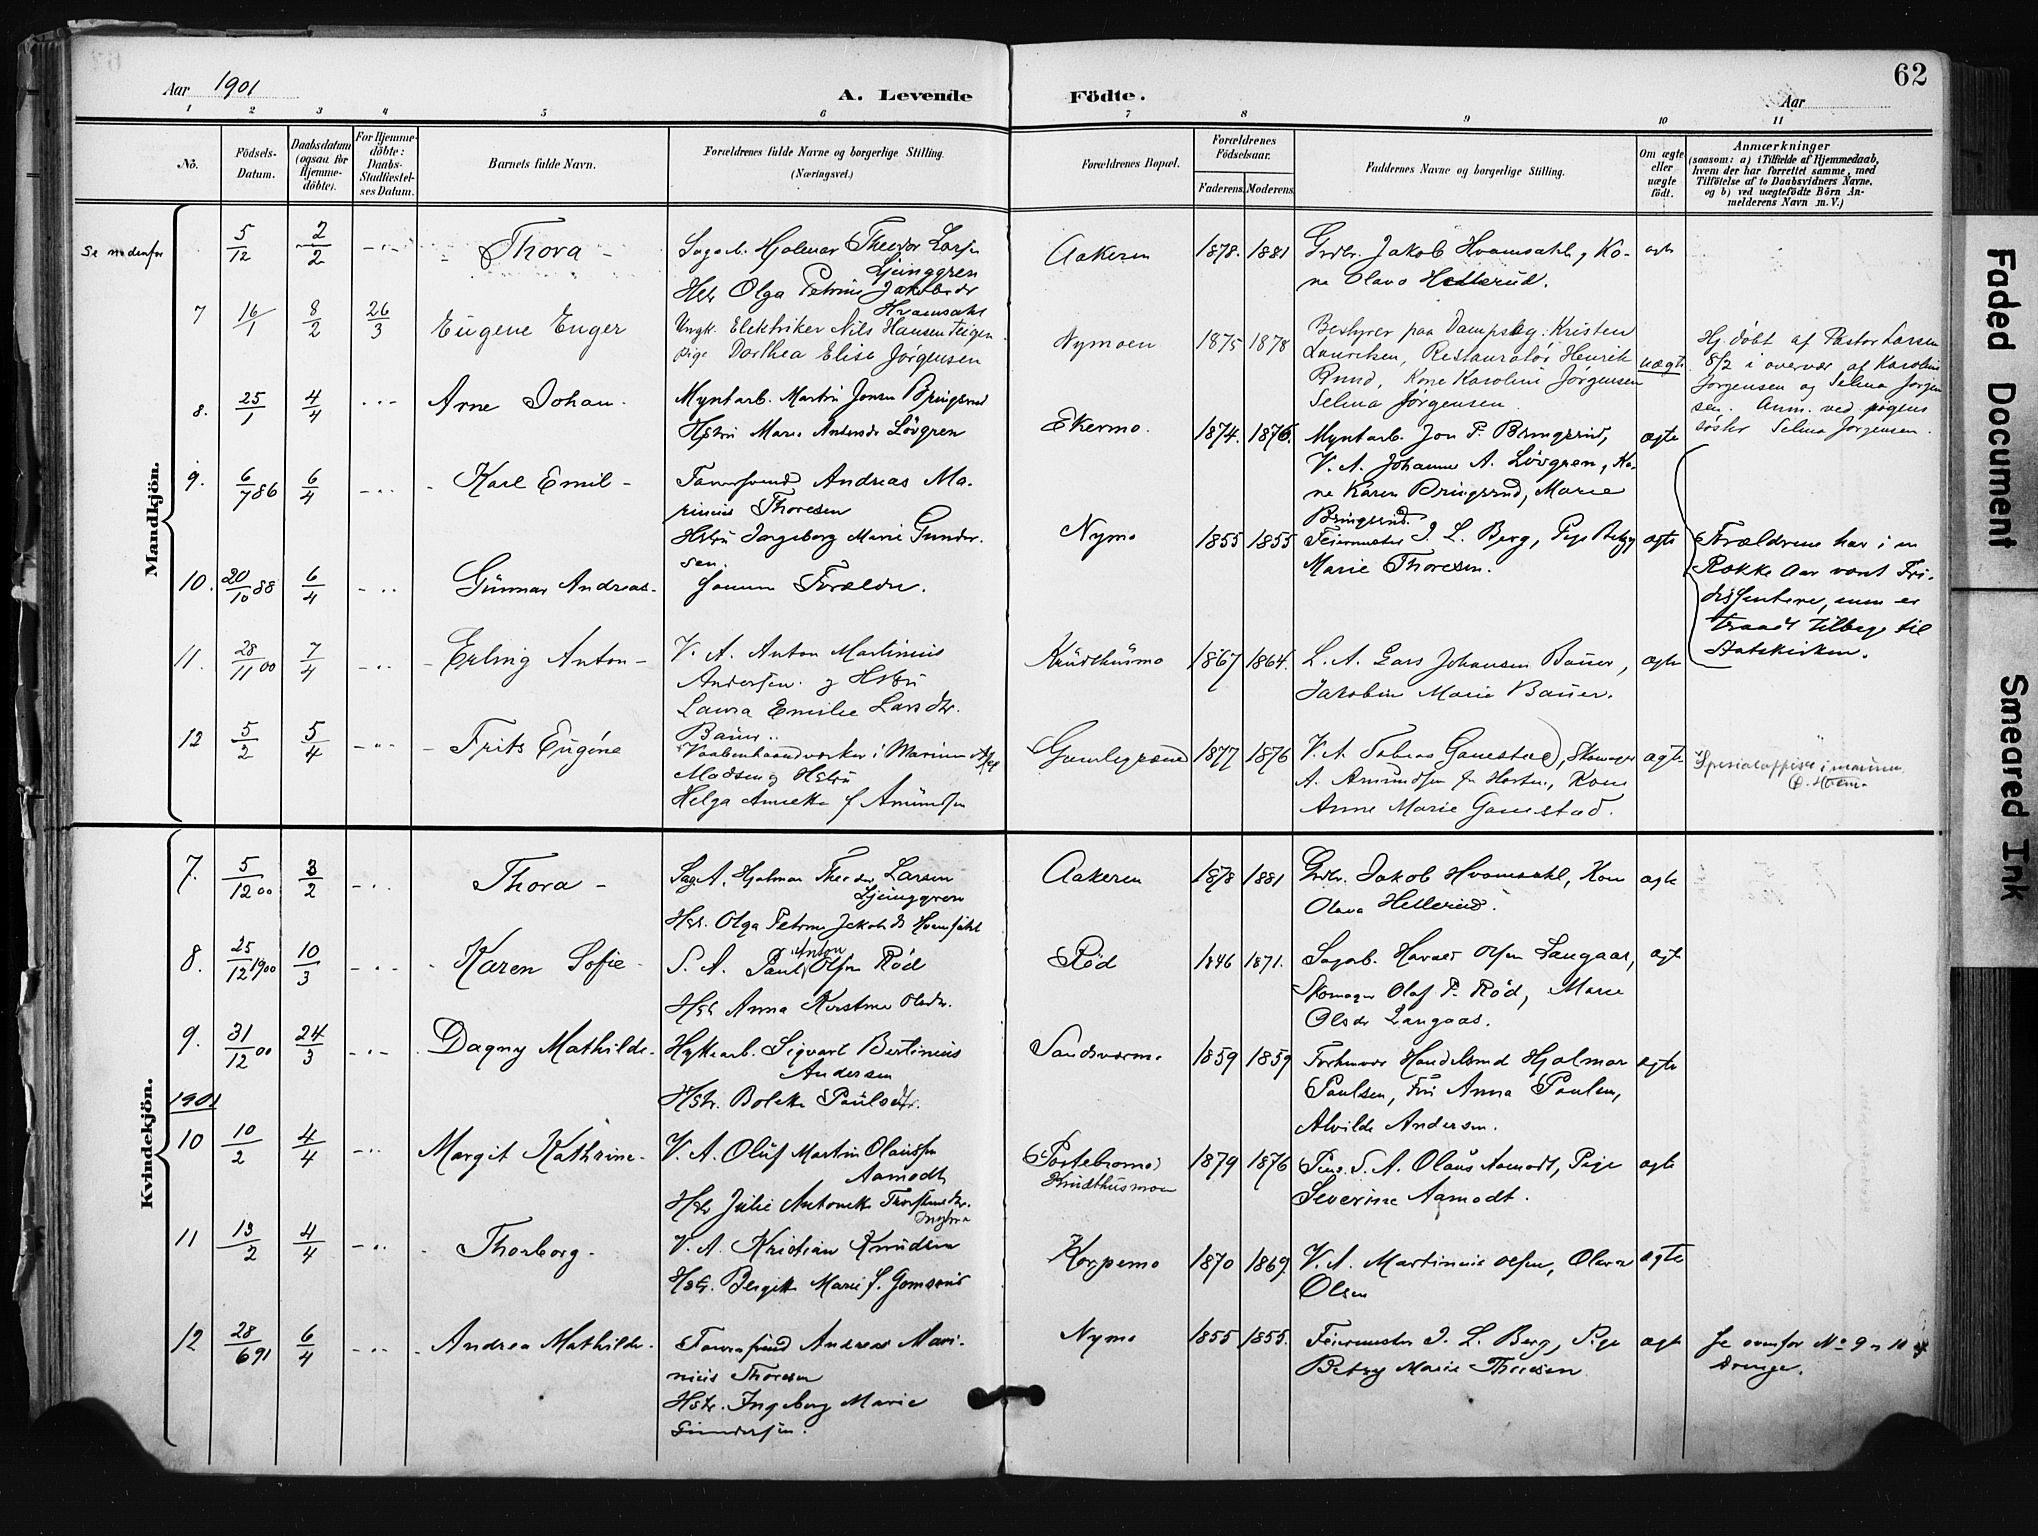 Aar 1901
A. Levende Födte.
62
Aar
1 2 3 4 5 6 7 8 9 10 11
No.
Födsels-Datum.
Daabsdatum (ogsaa for Hjemme-döbte).
For Hjemme-döbte: Daabs-Stadfæstel-ses Datum.
Barnets fulde Navn.
Forældrenes fulde Navne og borgerlige Stilling.
(Næringsvei.)
Forældrenes Bopæl.
Forældrenes Födselsaar.
Faderens. Moderens.
Faddernes Navne og borgerlige Stilling.
Om ægte eller uægte födt.
Anmærkninger
(saasom: a) i Tilfælde af Hjemmedaab,
hvem der har forrettet samme, med
Tilföielse af to Daabsvidners Navne,
og b) ved uægtefödte Börn An-
melderens Navn m. V.)
Mandkjön.
Se nedenfor 5/12 2/2 - Thora - Sagarb. Hjalmar Theodor Larsen
Ljunggren
Hstr Olga Petrine Jakobsdr
Hvamsahl
Aakeren 1878. 1881 Grdbr. Jakob Hvamsahl, Ko-
ne Olava Hellerud. ægte
7 16/1 8/2 26/3 Eugene Enger Ungk. Elektriker Nils Hansen Teigen
pige Dorthea Elise Jørgensen
Nymoen 1875 1878 Bestyrer paa Dampsbg. Kristen
Lauritsen, Restauratör Henrik
Rund, Kone Karoline Jørgensen
Selma Jørgensen uægte
Hj. døbt af Pastor Larsen
8/2 i overvær af Karoline
Jørgensen og Selma Jørgen
sen. Anm. ved pigens
søster Selma Jørgensen.
8. 25/1 4/4 Arne Johan. Myntarb. Martin Jonsen Bringsrud
Hstru Marie Antonsdr Lövgren
Ekermo. 1874. 1876. Myntarb. Jon P. Bringsrud,
V. A. Johannes A. Lövgren, Ko-
ne Karen Bringsrud, Marie
Bringsrud. ægte
9. 6/7 86 6/4 Karl Emil - Farversvend Andreas Ma-
rinius Thoresen
Hstru Ingeborg Marie Gunder-
sen.
Nymo 1855 1855 Feiermester I. L. Berg, Pige Betzy
Marie Thoresen. ægte
Forældrene har i en
Række Aar vært Fri-
dissentere, men er
traadt tilbage til
Statskirken.
10. 20/10 88 6/4 Gunnar Andreas. Samme Forældre.
11. 28/11 00 7/4 - Erling Anton - V. A. Anton Martinius
Andersen og Hstru
Laura Emilie Larsdtr.
Bauer.
Krudthusmo 1867 1864. L. A. Lars Johansen Bauer,
Jakobine Marie Bauer. ægte
12 5/2 5/4 - Frits Eugéne Vaabenhaandværker i Marinen
Madsen og Hstru
Helga Annette f Amundsen
Gamlegrænd 1877 1876 V. A. Tobias Gamestad, Skomager
A. Amundsen fr Horten, Kone
Anne Marie Gamestad. ægte
Kvindekjön.
7. 5/12 00 3/2 Thora - Sag A. Hjalmar Theodor Larsen
Ljunggren
Hstr. Olga Petrine Jakobsdr Hvamsahl
Aakeren 1878 1881 Grdbr. Jakob Hvamsahl, Kone
Olava Hellerud. ægte
8. 25/12 1900 10/3 - Karen Sofie S. A. Paul Anton Olsen Röd
Hstr Anna Kirstine Olsdr.
Röd 1846 1871. Sagarb. Halvor Olsen Langaas,
Skomager Olaf P. Röd, Marie
Olsdr Langaas. ægt
9. 31/12 00 24/3 Dagny Mathilde. Hytte arb. Sigvart Bertinius
Andersen
Hstr. Bolette Paulsdtr.
Sandsværmo 1859 1859 Forhenvær Handelsmd Hjalmar
Paulsen, Fru Anna Paulsen,
Alvilde Andersen. ægte
1901
10 10/2 4/4 Margit Kathrine. V. A. Oluf Martin Olaussen
Aamodt
Hstr Julie Antonette Thorstensdtr.
Krudthusmoen 1879 1876 Pens. S. A. Olaus Aamodt, Pige
Severine Aamodt. ægte
11 13/2 4/4 Thorborg. V. A. Kristian Knudsen
Hstr. Birgitte Marie f. Gomsrud
Korpemo 1870 1869 V. A. Martinius Olsen, Olava
Olsen ægte
12 28/6 91 6/4 Andrea Mathilde. Farversvend Andreas Mari-
nius Thoresen
Hstr. Ingeborg Marie
Gundersen.
Nymo 1855 1855. Feiermester I. L. Berg, Pige
Betzy Marie Thoresen ægt
Se ovenfor No 9 og 10
Drenge.
Faded Document
Smeared Ink